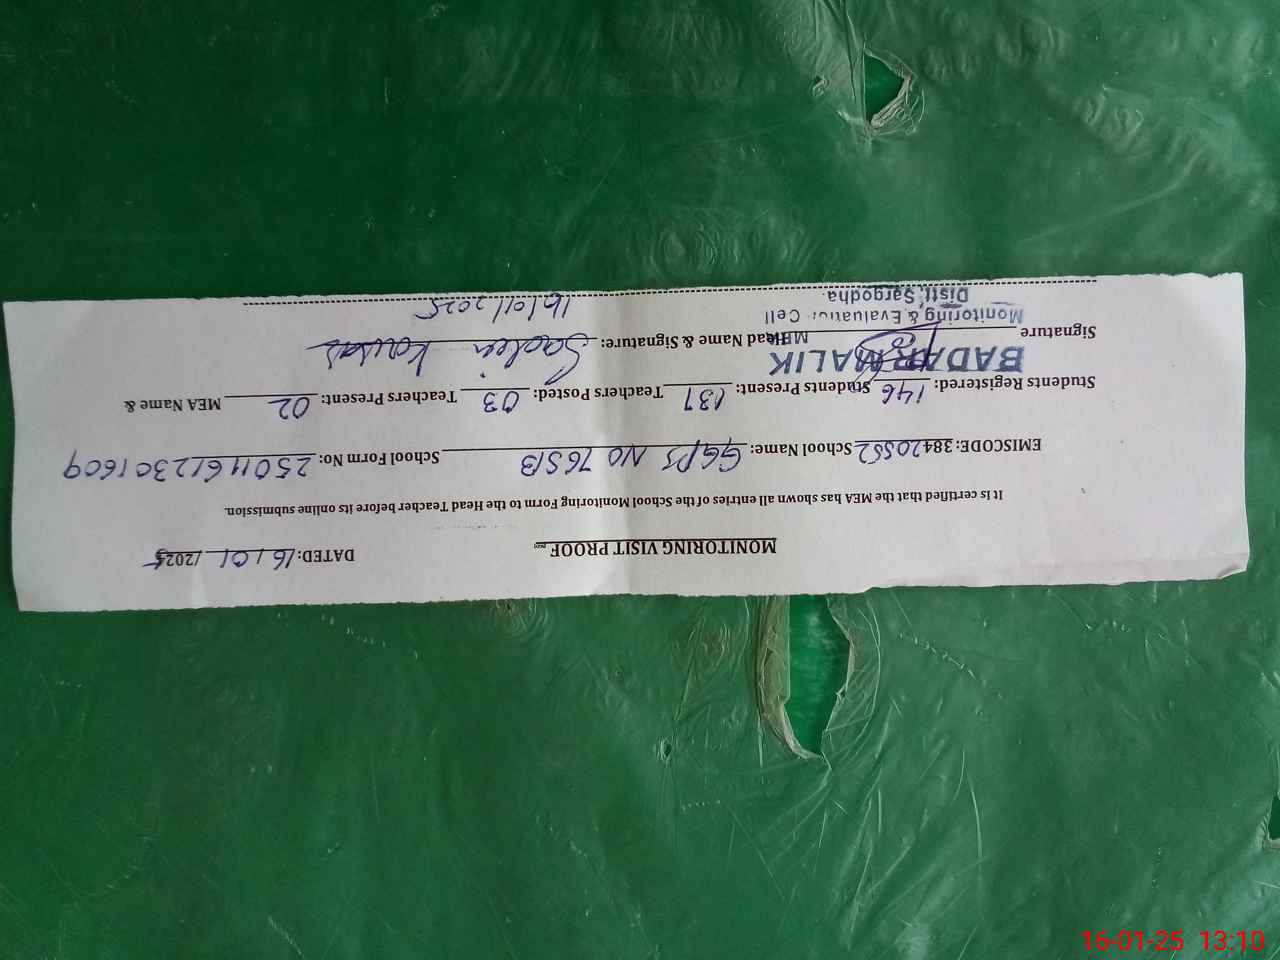 MONITORING VISIT PROOF
DATED: 16/01/2025
It is certified that the MEA has shown all entries of the School Monitoring Form to the Head Teacher before its online submission.
EMISCODE: 38420552 School Name: GGPS NO 76SB School Form No: 250116122301609
Students Registered: 146 Students Present: 137 Teachers Posted: 03 Teachers Present: 02 MEA Name &
Signature BADAR MALIK Head Name & Signature: Kausar
Monitoring & Evaluation Cell
Distt. Sargodha.
16/01/2025
16-01-25 13:10